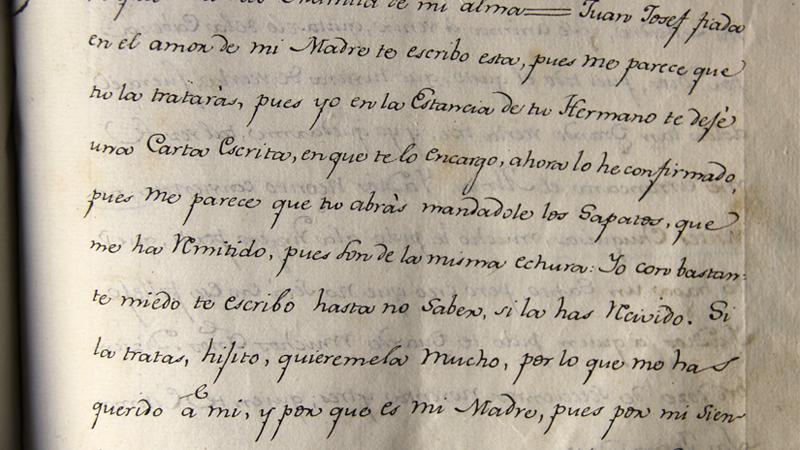 de mi alma == Juan Josef fiada
en el amor de mi Madre te escribo esta, pues me parece que
tu la trataràs, pues yo en la Estancia de tu Hermano te dejè
una Carta Escrita, en que te lo encargo, ahora lo he confirmado,
pues me parece que tu abràs mandadole los Sapatos, que
me ha Remitido, pues son de la misma echura: Yo con bastan-
te miedo te escribo hasta no Saber, si la has Recivido. Si
la tratas, hijito, quieremela mucho, por lo que me has
querido à mi, y por que es mi Madre, pues por mi sien-